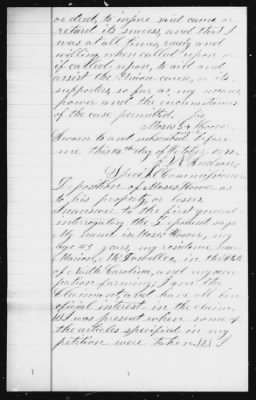 or deed, to injure said cause or
retard its success, and that I
was at all times, ready and
willing when called upon or
if called upon, to aid and
assist the Union cause, or its
supporters, so far as my means
power and the circumstances
of the case permitted. his
Moses X Hoover.
Sworn to and subscribed before
me this 14th day of October
Special Commissioner
Deposition of Moses Hoover as
to his property or losses
In answer to the first general
interrogatory the Deponent says
My name is Moses Hoover, my
age 59 years, my residence near
in the State
of North Carolina, and my occu
pation farming; I am the
Claimant, and have all ben
eficial interest in the claim.
I was present when some of
the articles specified in my
petition were taken I